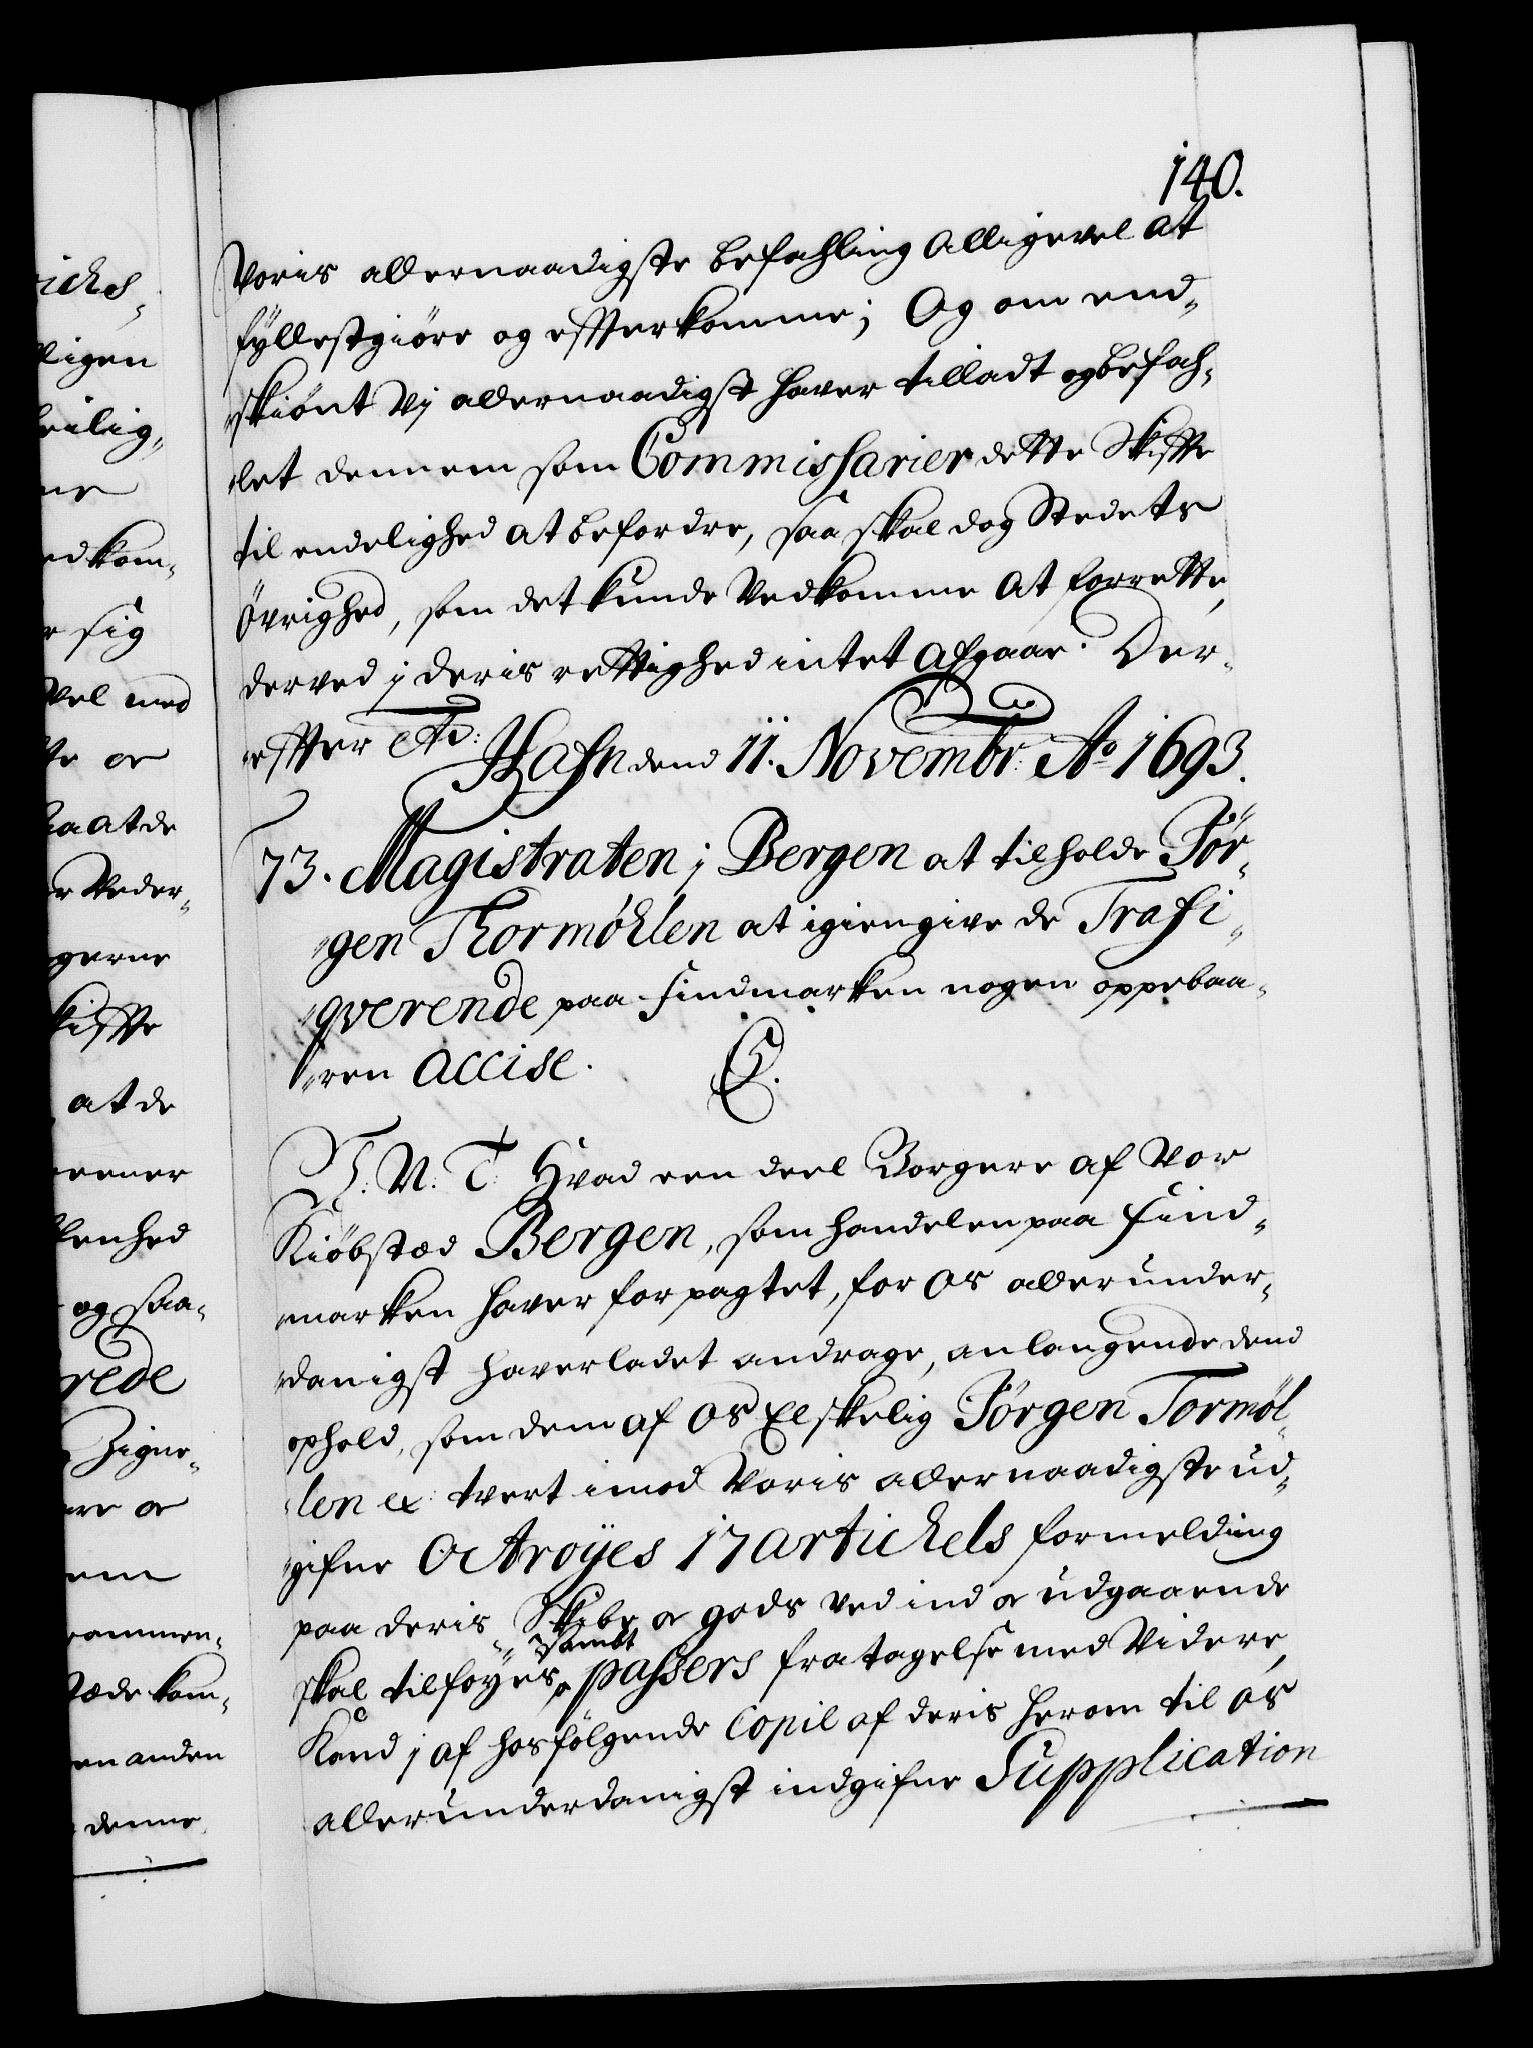 140.
Voris allernaadigste befahling alligevel at
fyllestgiøre og effterkomme; Og om end-
skiønt Vj allernaadigst haver tilladt og befah-
let dennem som Commissarier dette Skiffte
til endelighed at befordre, saa skal dog Stedets
Øvrighed, som det kunde Vedkomme at forrette,
derved j deris rettighed intet afgaar. Der-
effter etc: Hafn dend 11. Novembr: Ao 1693.
73. Magistraten j Bergen at tilholde Jør-
gen Thormøhlen at igiengive de Trafi-
qverende paa Findmarken nogen oppebaa-
ren Accise.
C. 5.
V. N. T. Hvad een deel Borgere af Vor
Kiøbstæd Bergen, som handelen paa Find-
marken haver forpagtet, for os allerunder-
danigst haver ladet andrage, anlangende dend
ophold, som dem af os Elskelig Jørgen Tormøl-
len etc: tvert imod Voris allernaadigste ud-
gifne Octroyes 17 Artichels formelding
paa deris Skibe og gods ved ind og udgaaende
skal tilføyes, sambt passers fratagelse med Videre,
Kand j af hosfølgende Copie af deris herom til os
allerunderdanigst indgifne Supplication
ichs-
ligen
eilig-
ne
edkom-
r sig
Vel med
te og
aa at de
r Veder-
gerne
kiffte
at de
eener
lenhed
og saa-
rede
Zigne-
ere og
em
sammen-
tæde kom-
en anden
denne